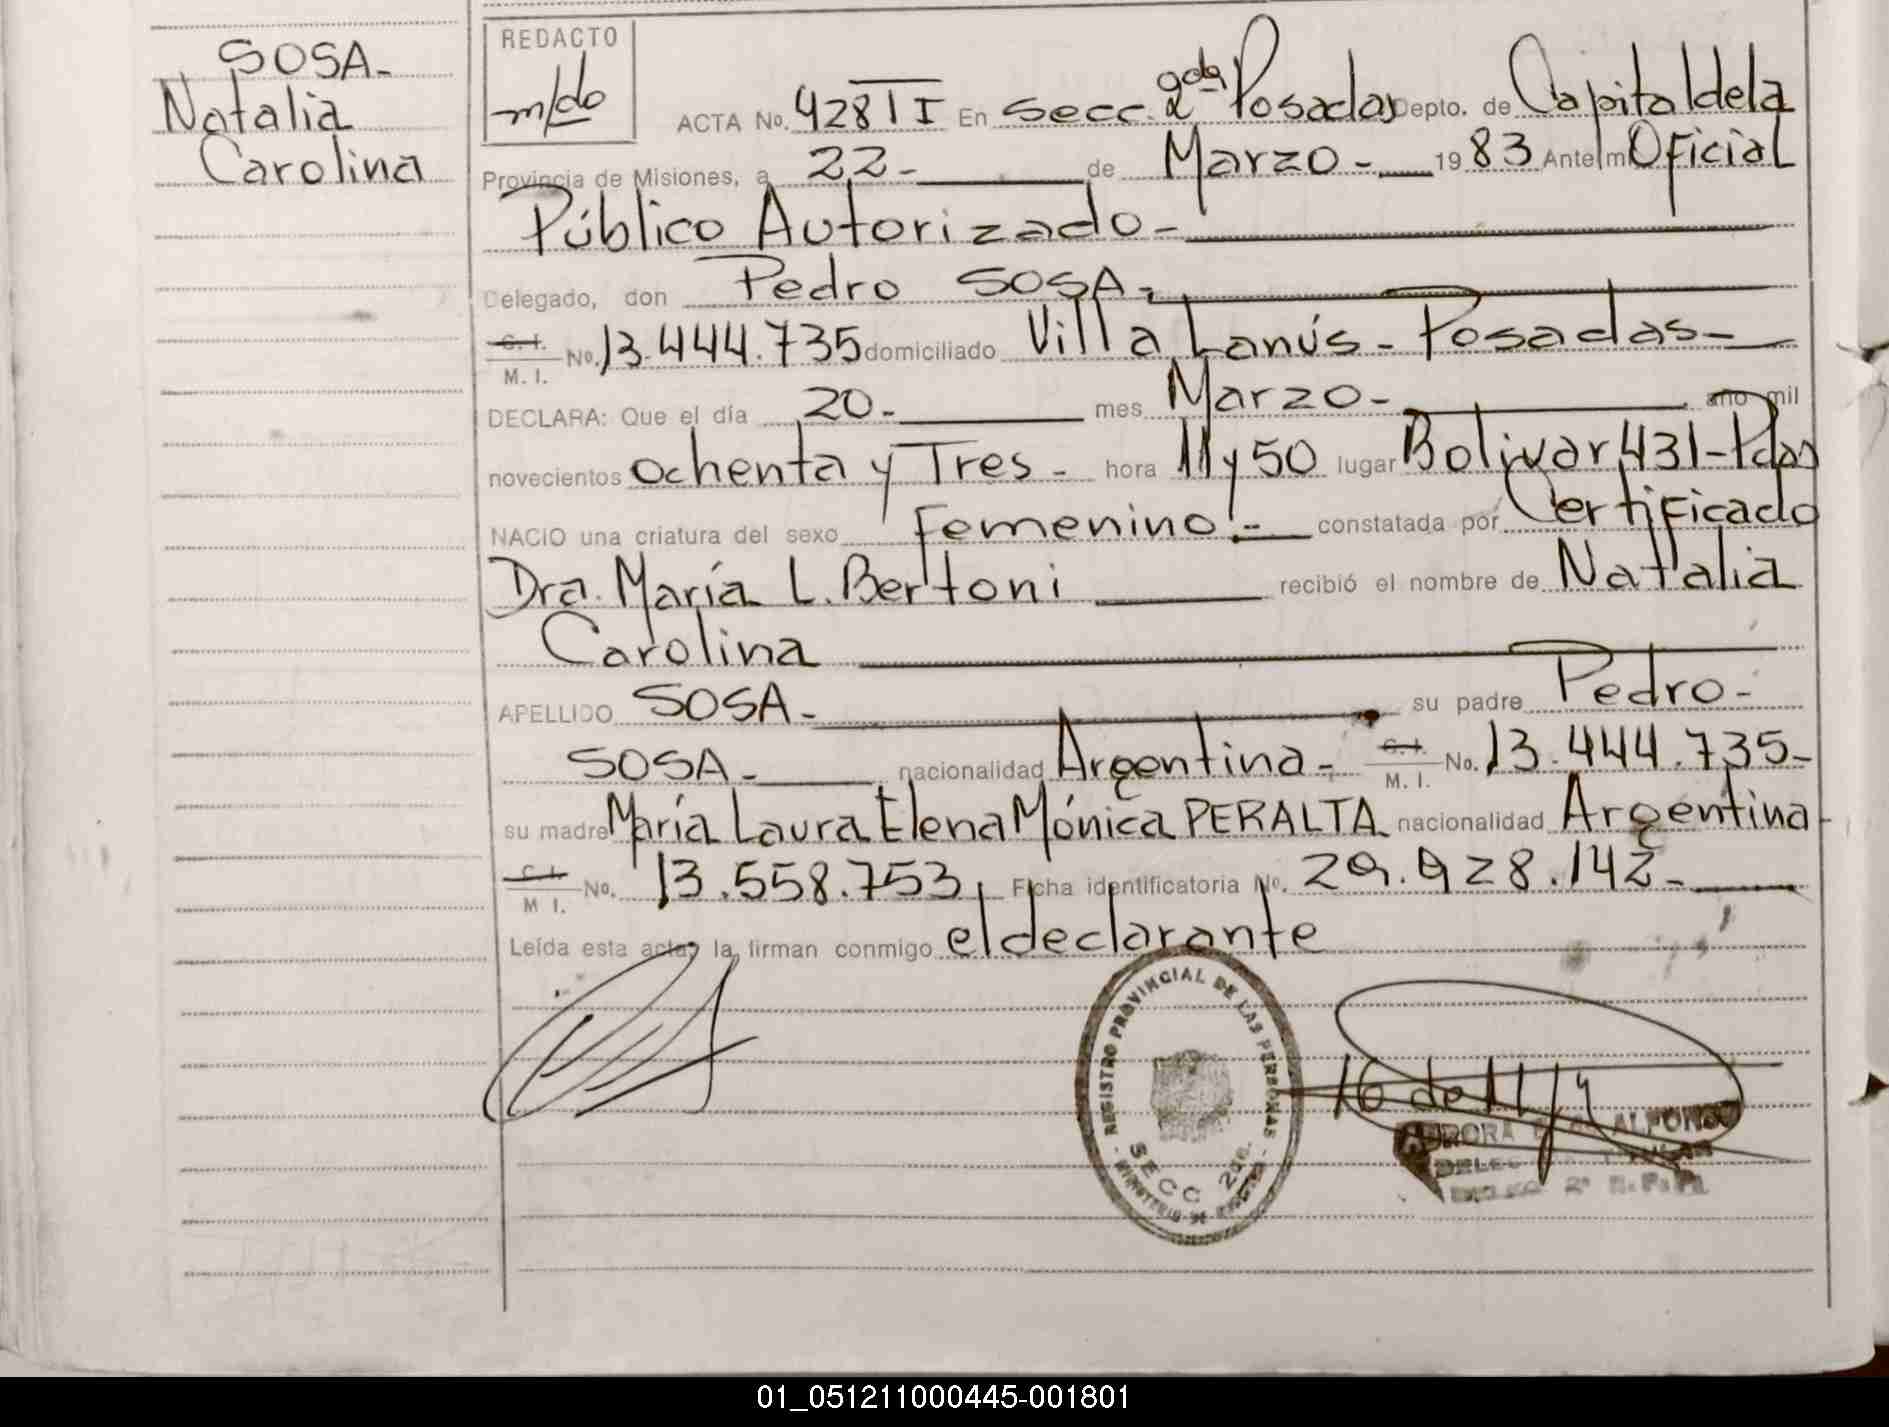 SOSA-
Natalia
Carolina
REDACTO
m/do
ACTA No. 428 TI En secc. 2da Posadas Depto. de Capital de la
Provincia de Misiones, a 22- de Marzo- 1983 Ante mi Oficial
Público Autorizado-
Delegado, don Pedro SOSA-
C. I.
M. I. No. 13.444.735 domiciliado Villa Lanús - Posadas-
DECLARA: Que el día 20- mes Marzo- año mil
novecientos ochenta y Tres- hora 11 y 50 lugar Bolivar 431-Pdas
NACIO una criatura del sexo Femenino.- constatada por Certificado
Dra. María L. Bertoni recibió el nombre de Natalia
Carolina
APELLIDO SOSA- su padre Pedro-
SOSA- nacionalidad Argentina- C. I. M. I. No. 13.444.735-
su madre María Laura Elena Mónica PERALTA nacionalidad Argentina-
C. I. M. I. No. 13.558.753, Ficha identificatoria No. 29.928.142-
Leída esta acta, la firman conmigo el declarante
REGISTRO PROVINCIAL DE LAS PERSONAS
SECC 2da.
MINISTERIO DE
16 de 11/9
ALFONSO
01_051211000445-001801